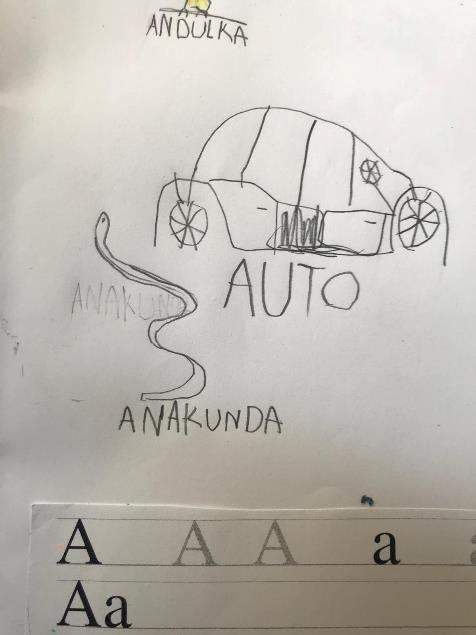 ANDULKA
AUTO
ANAKUND
ANAKUNDA
A A A a
Aa